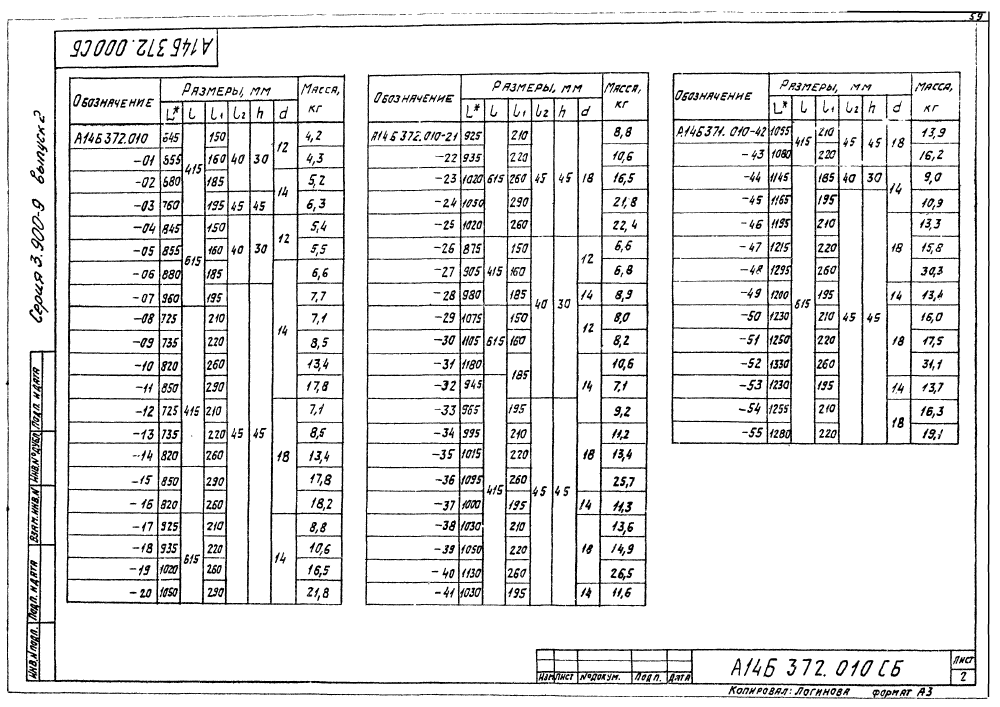 59
А14Б 372.000 СБ
Серия 3.900-9 выпуск 2
Обозначение Размеры, мм Масса, кг
L* l l₁ l₂ h d
А14Б372.010 645 415 150 40 30 12 4,2
-01 655 160 4,3
-02 680 185 14 5,2
-03 760 195 45 45 6,3
-04 845 615 150 40 30 12 5,4
-05 855 160 5,5
-06 880 185 14 6,6
-07 960 195 45 45 7,7
-08 725 415 210 7,1
-09 735 220 8,5
-10 820 260 13,4
-11 850 290 17,8
-12 725 210 18 7,1
-13 735 220 8,5
-14 820 260 13,4
-15 850 290 17,8
-16 820 260 18,2
-17 925 615 210 14 8,8
-18 935 220 10,6
-19 1020 260 16,5
-20 1050 290 21,8
Обозначение Размеры, мм Масса, кг
L* l l₁ l₂ h d
А14Б372.010-21 925 615 210 45 45 18 8,8
-22 935 220 10,6
-23 1020 260 16,5
-24 1050 290 21,8
-25 1020 260 22,4
-26 875 415 150 40 30 12 6,6
-27 905 160 6,8
-28 980 185 14 8,9
-29 1075 615 150 12 8,0
-30 1105 160 8,2
-31 1180 185 14 10,6
-32 945 7,1
-33 965 415 195 45 45 9,2
-34 995 210 18 11,2
-35 1015 220 13,4
-36 1095 260 25,7
-37 1000 195 14 11,3
-38 1030 210 18 13,6
-39 1050 220 14,9
-40 1130 260 26,5
-41 1030 195 14 11,6
Обозначение Размеры, мм Масса, кг
L* l l₁ l₂ h d
А14Б371.010-42 1055 415 210 45 45 18 13,9
-43 1080 220 16,2
-44 1145 615 185 40 30 14 9,0
-45 1165 195 45 45 10,9
-46 1195 210 18 13,3
-47 1215 220 15,8
-48 1295 260 30,3
-49 1200 195 14 13,4
-50 1230 210 18 16,0
-51 1250 220 17,5
-52 1330 260 31,1
-53 1230 195 14 13,7
-54 1255 210 18 16,3
-55 1280 220 19,1
Инв.№ подл. Подп. и дата Взам. инв.№ Инв.№ дубл. Подп. и дата
Изм Лист № докум. Подп. Дата
А14Б 372.010 СБ
Лист
2
Копировал: Логинова формат А3